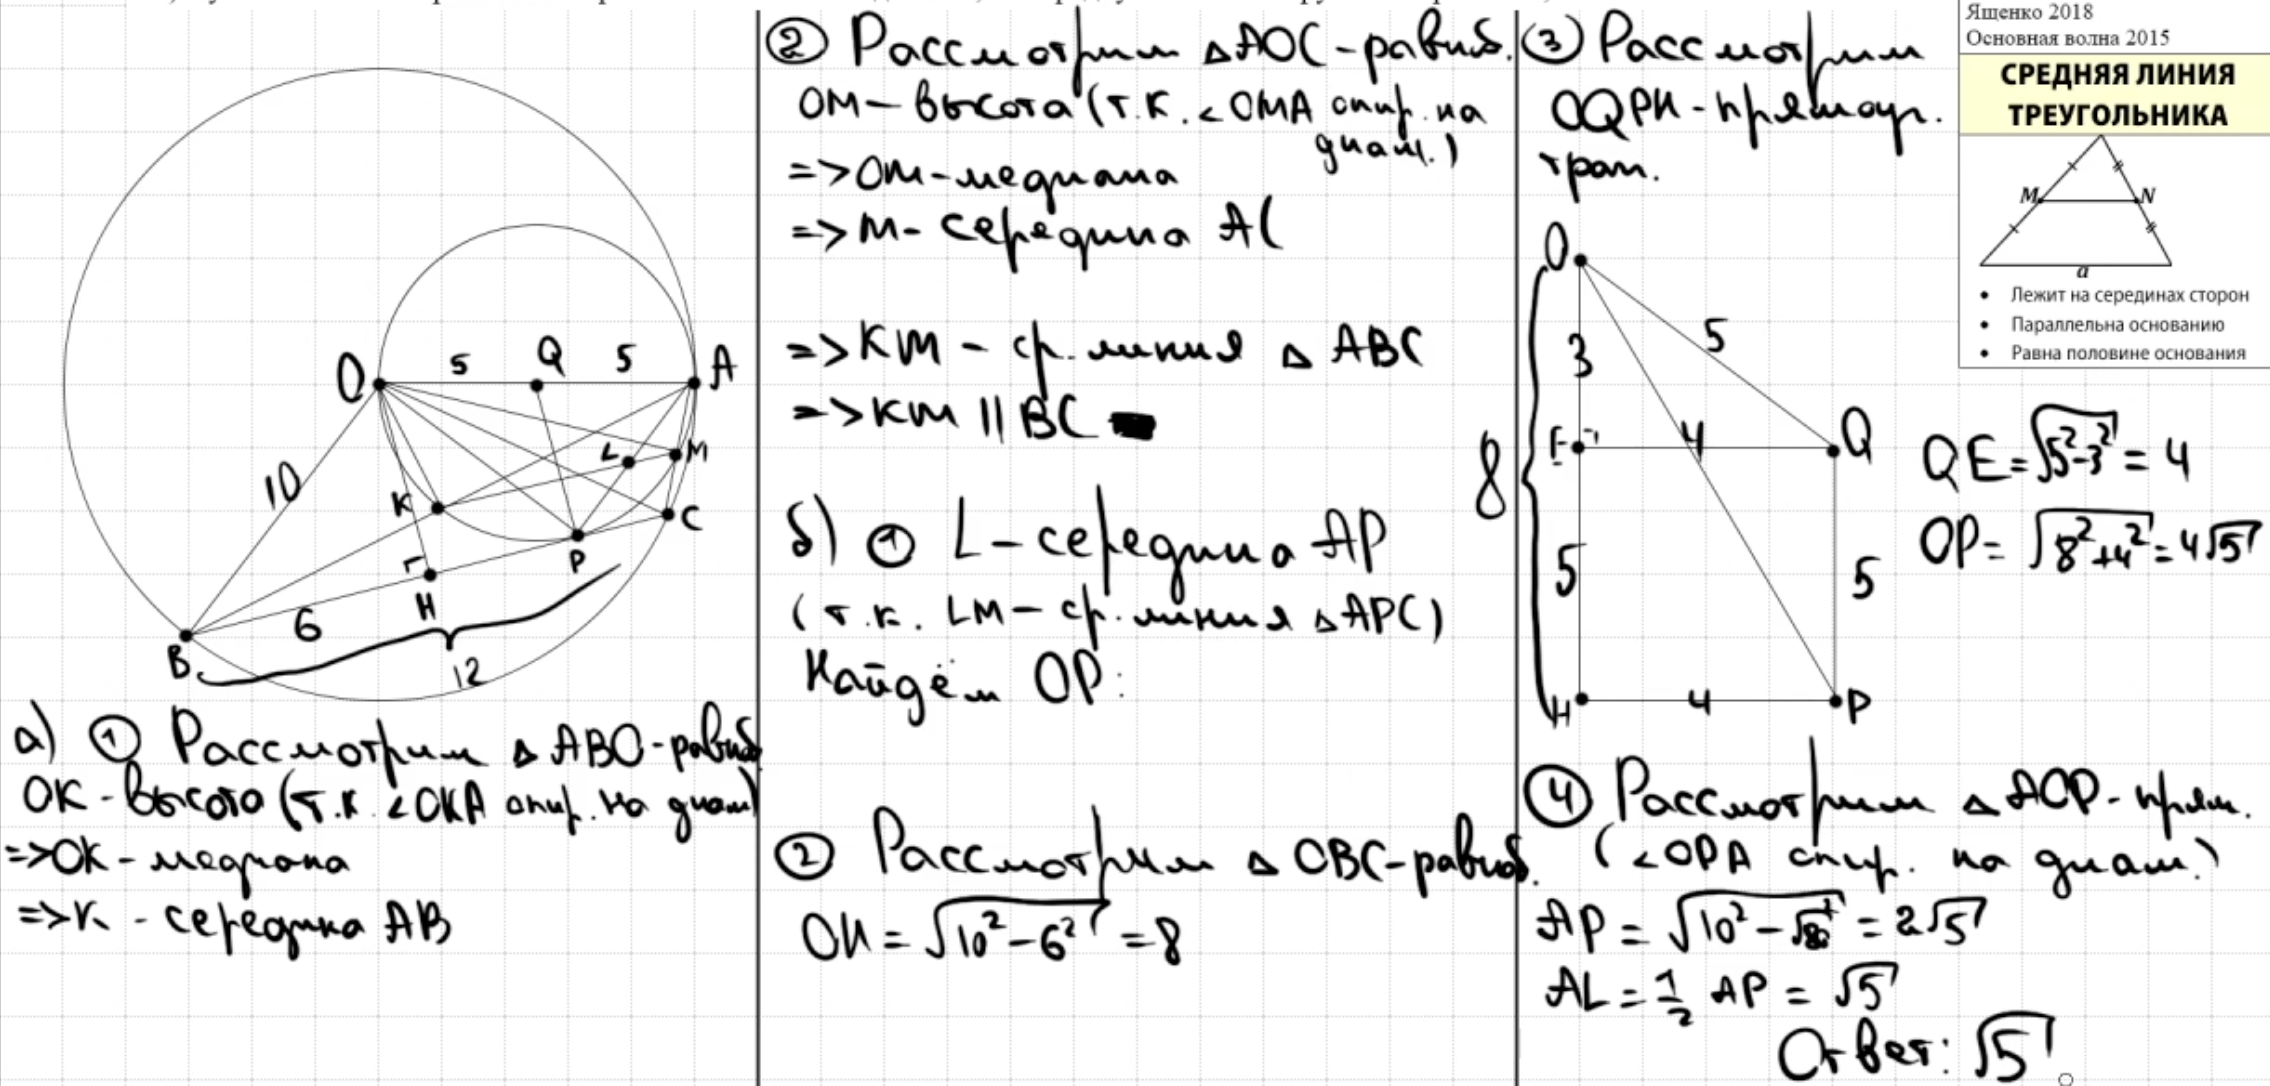 Ященко 2018
Основная волна 2015
СРЕДНЯЯ ЛИНИЯ
ТРЕУГОЛЬНИКА
M N
a
• Лежит на серединах сторон
• Параллельна основанию
• Равна половине основания
O 5 Q 5 A
10
L M
K C
P
H
6
B
12
а) ① Рассмотрим △ ABO-равноб.
OK - высота (т.к. <OKA опир. на диам)
=>OK - медиана
=>K - середина AB
② Рассмотрим △AOC-равноб.
OM - высота (т.к. <OMA опир. на
диам.)
=>OM-медиана
=>M- середина AC
=>KM - ср. линия △ ABC
=>KM || BC
б) ① L-середина AP
(т.к. LM - ср. линия △APC)
Найдём OP:
② Рассмотрим △ OBC-равноб.
OH = √10²-6² = 8
③ Рассмотрим
OQPH - прямоуг.
трап.
O
5
3
E 4 Q
8
5 5
H 4 P
QE=√5²-3² = 4
OP= √8²+4² = 4√5
④ Рассмотрим △ AOP-прям.
(<OPA опир. на диам.)
AP = √10²-√80² = 2√5
AL = 1/2 AP = √5
Ответ: √5